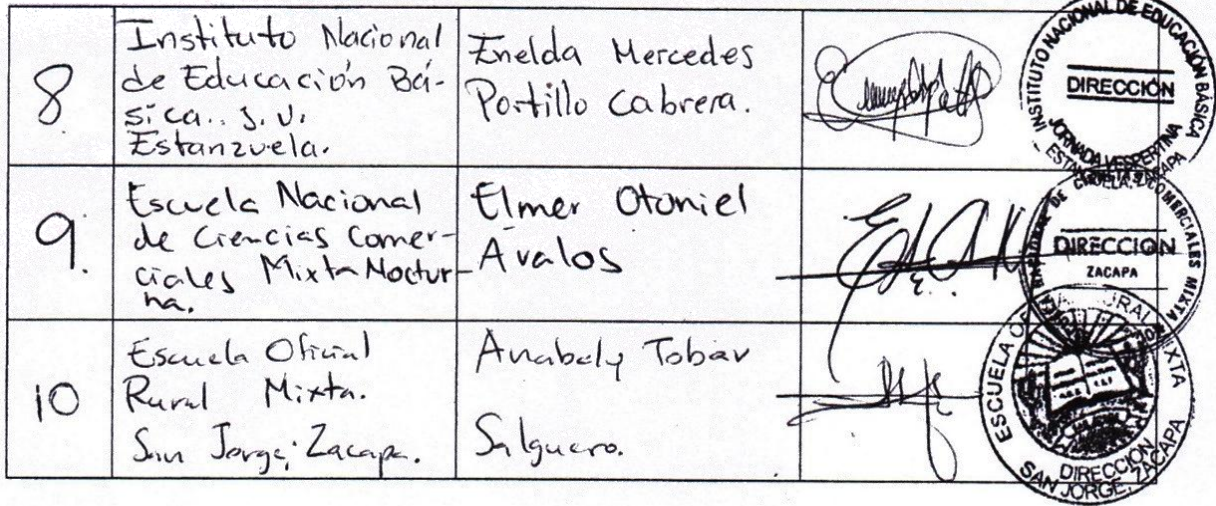 8
Instituto Nacional
de Educación Bá-
sica.. J.V.
Estanzuela.
Enelda Mercedes
Portillo Cabrera.
INSTITUTO NACIONAL DE EDUCACIÓN BASICA
DIRECCIÓN
JORNADA VESPERTINA
9.
Escuela Nacional
de Ciencias Comer-
ciales Mixta Noctur-
na.
Elmer Otoniel
Avalos
DIRECCION
ZACAPA
COMERCIALES MIXTA
10
Escuela Oficial
Rural Mixta.
San Jorge, Zacapa.
Anabely Tobar
Salguero.
ESCUELA
MIXTA
DIRECCION
SAN JORGE, ZACAPA